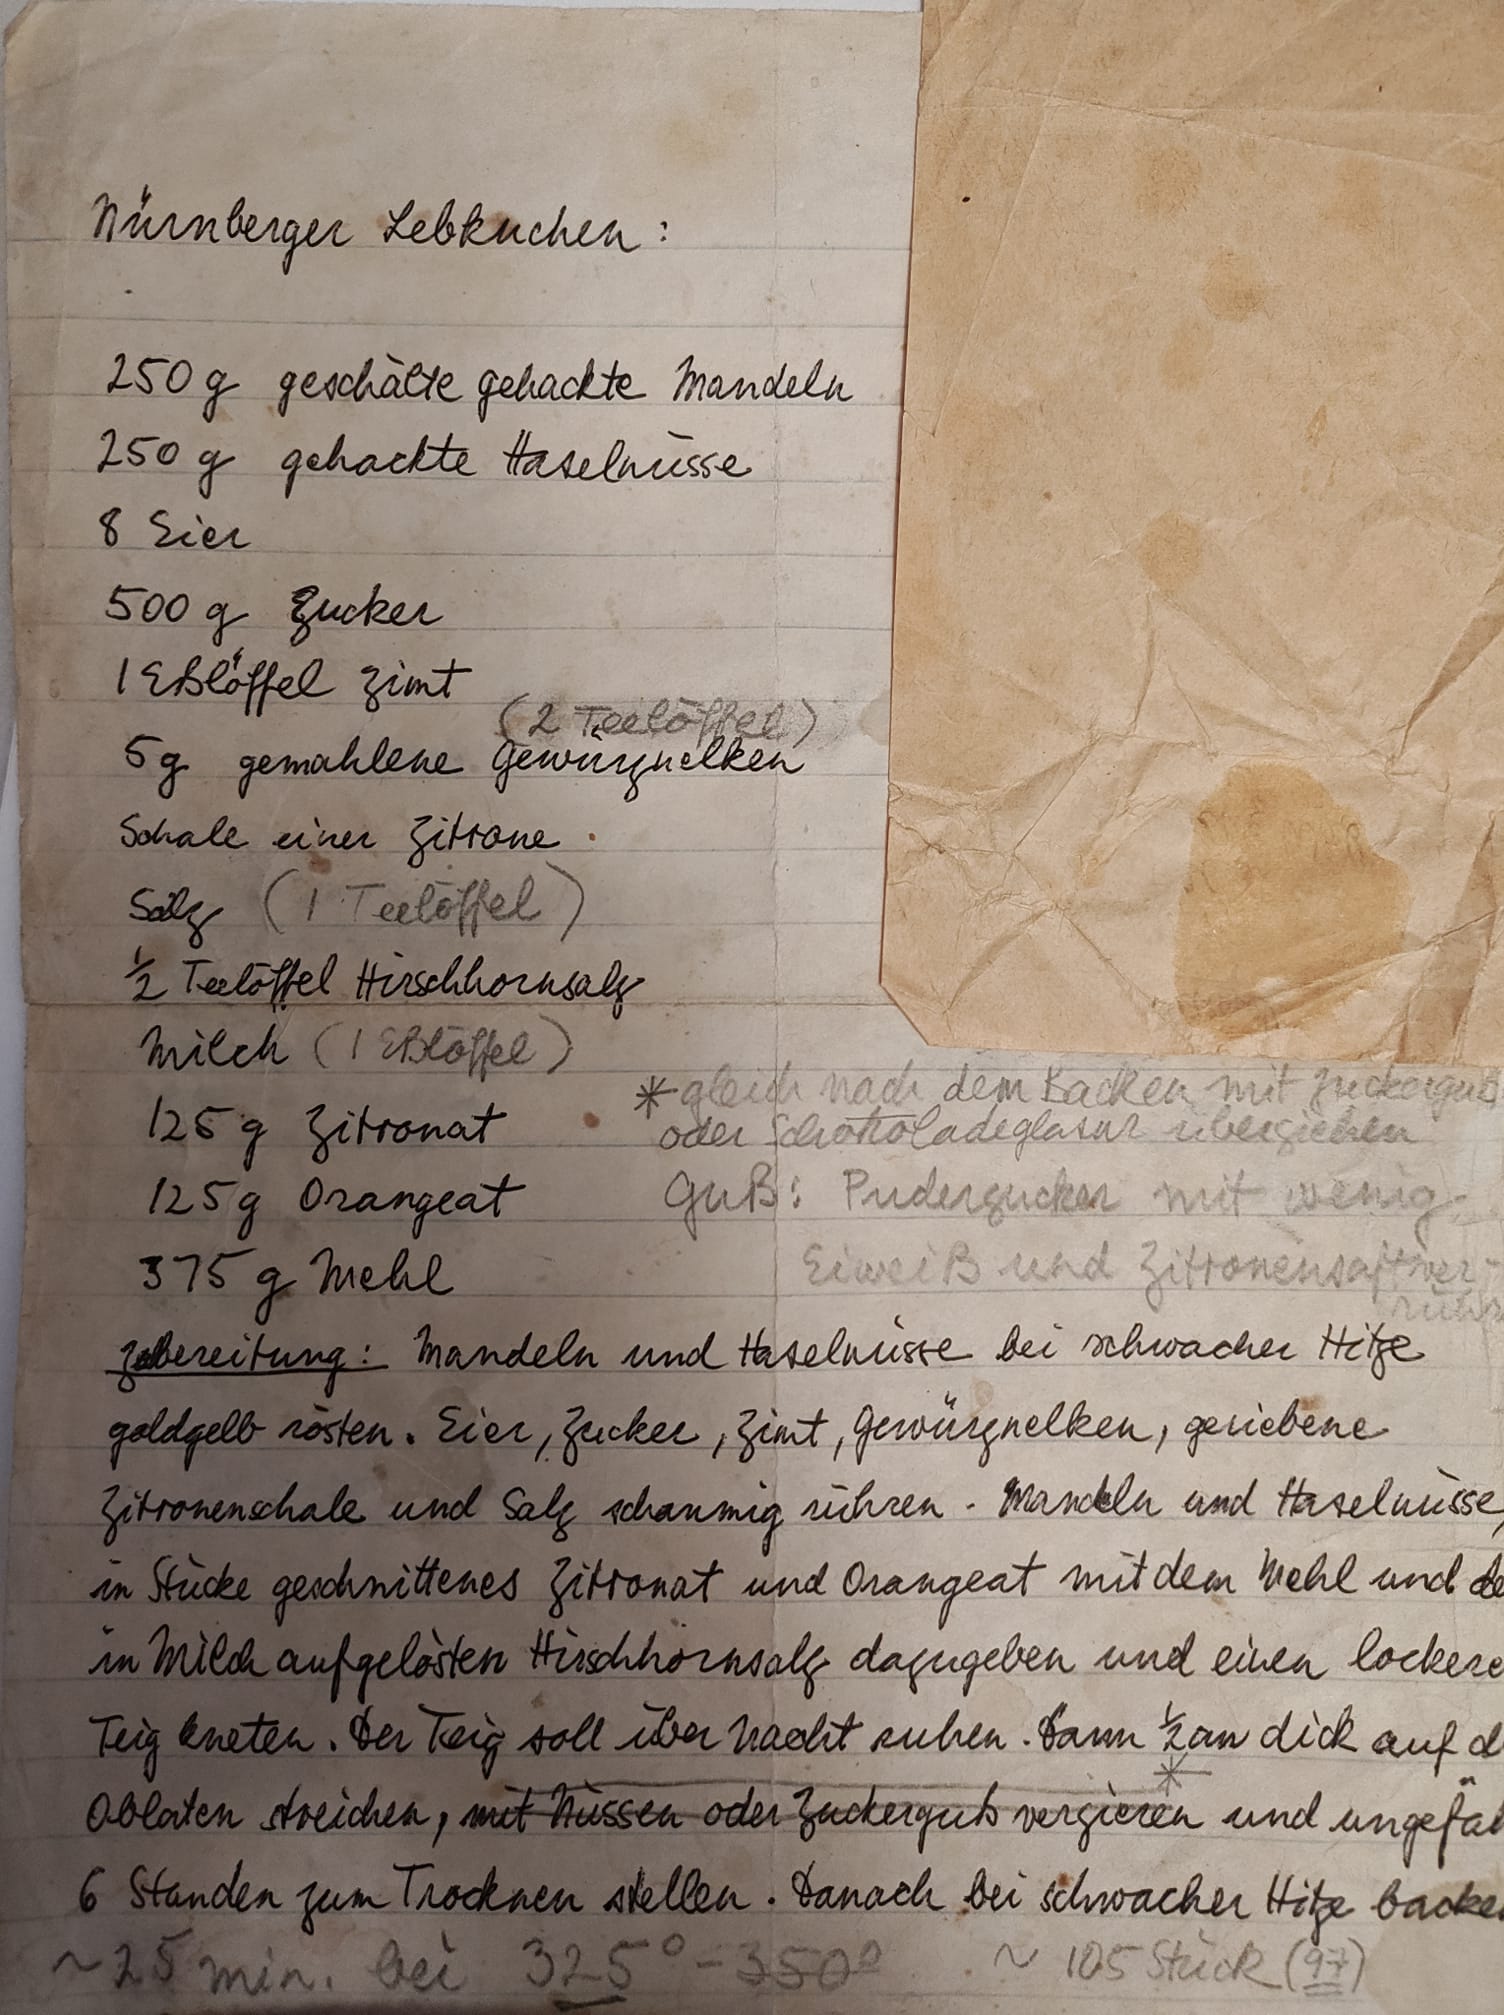 Nürnberger Lebkuchen:
250 g geschälte gehackte Mandeln
250 g gehackte Haselnüsse
8 Eier
500 g Zucker
1 Eßlöffel Zimt
(2 Teelöffel)
5 g gemahlene Gewürznelken
Schale einer Zitrone
Salz (1 Teelöffel)
½ Teelöffel Hirschhornsalz
Milch (1 Eßlöffel)
* gleich nach dem Backen mit Zuckerguß
125 g Zitronat
oder Schokoladeglasur überziehen
125 g Orangeat
Guß: Puderzucker mit wenig
Eiweiß und Zitronensaft ver-
rühr
375 g Mehl
Zubereitung: Mandeln und Haselnüsse bei schwacher Hitze
goldgelb rösten. Eier, Zucker, Zimt, Gewürznelken, geriebene
Zitronenschale und Salz schaumig rühren. Mandeln und Haselnüsse,
in Stücke geschnittenes Zitronat und Orangeat mit dem Mehl und de
in Milch aufgelösten Hirschhornsalz dazugeben und einen lockere
Teig kneten. Der Teig soll über Nacht ruhen. Dann ½ cm dick auf d
*
Oblaten streichen, mit Nüssen oder Zuckerguß verzieren und ungefäh
6 Stunden zum Trocknen stellen. Danach bei schwacher Hitze backe
~25 min. bei 325° - 350° ~ 105 Stück (97)